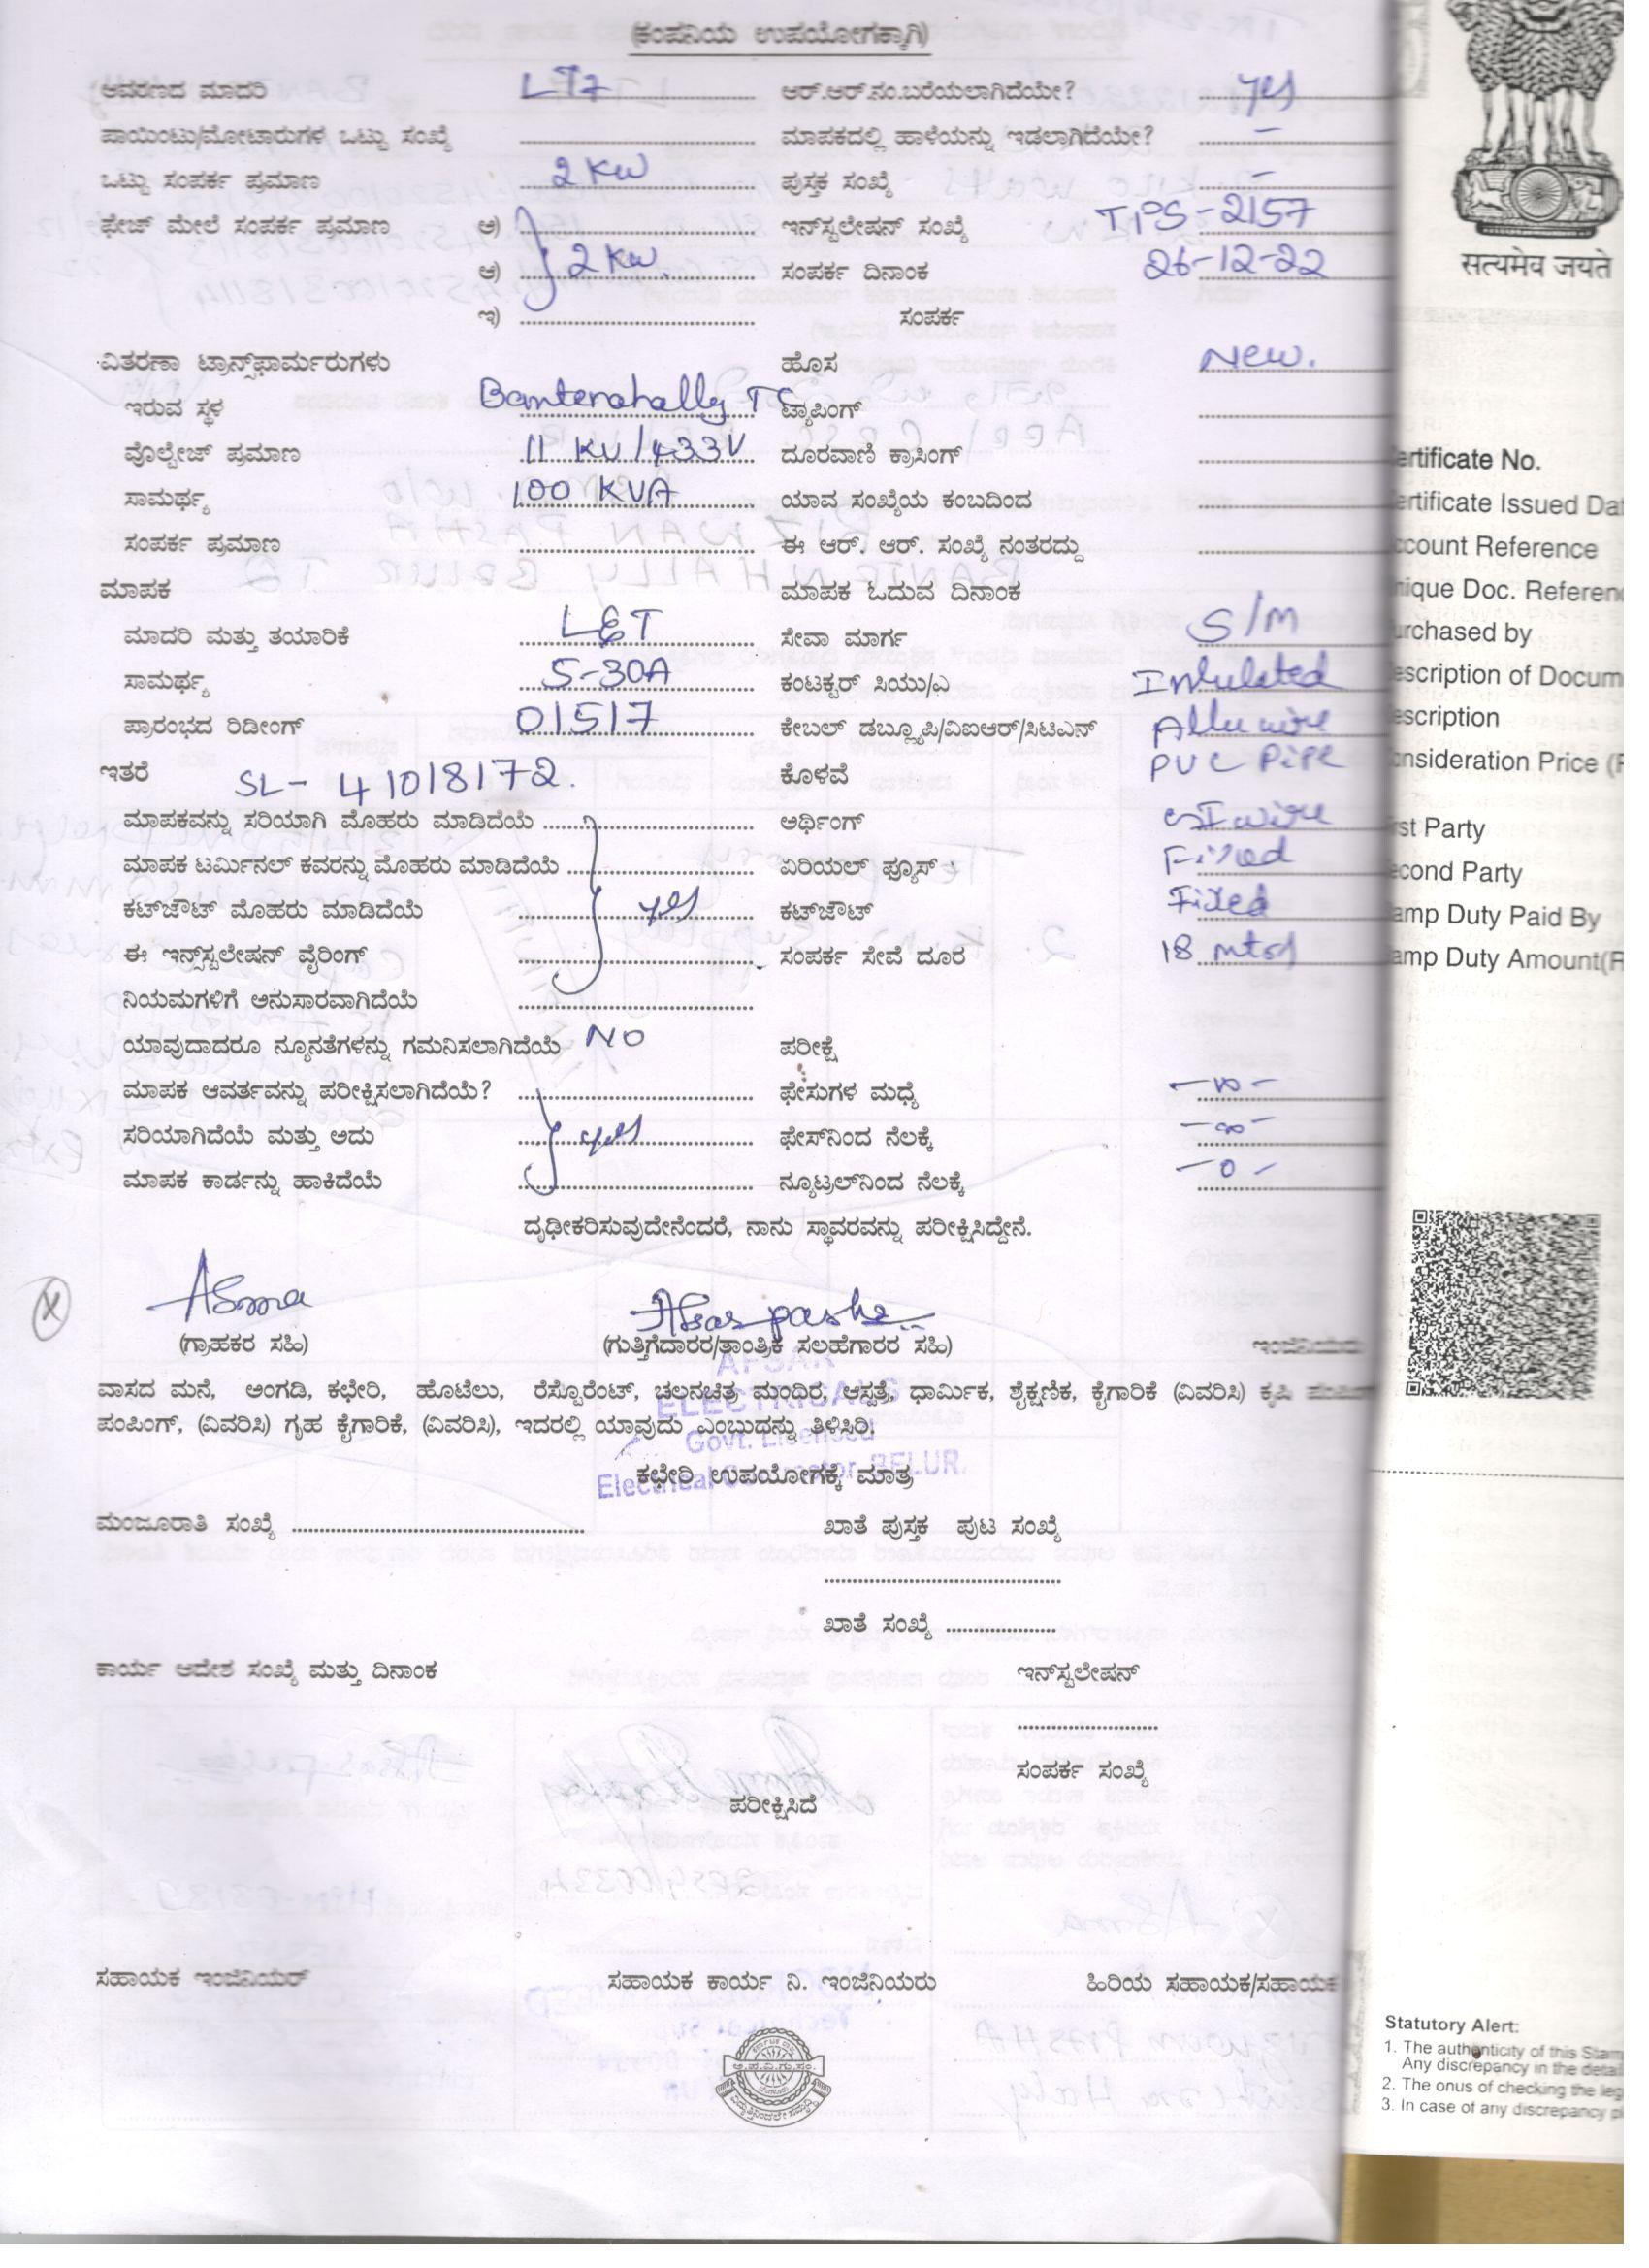 (ಕಂಪನಿಯ ಉಪಯೋಗಕ್ಕಾಗಿ)
ಆವರಣದ ಮಾದರಿ LT7 ಆರ್.ಆರ್.ನಂ.ಬರೆಯಲಾಗಿದೆಯೇ? yes
ಪಾಯಿಂಟು/ಮೋಟಾರುಗಳ ಒಟ್ಟು ಸಂಖ್ಯೆ ಮಾಪಕದಲ್ಲಿ ಹಾಳೆಯನ್ನು ಇಡಲಾಗಿದೆಯೇ? -
ಒಟ್ಟು ಸಂಪರ್ಕ ಪ್ರಮಾಣ 2 KW ಪುಸ್ತಕ ಸಂಖ್ಯೆ -
ಫೇಜ್ ಮೇಲೆ ಸಂಪರ್ಕ ಪ್ರಮಾಣ ಅ) ಇನ್‌ಸ್ಟಲೇಷನ್ ಸಂಖ್ಯೆ TPS-2157
ಆ) 2 KW. ಸಂಪರ್ಕ ದಿನಾಂಕ 26-12-22
ಇ) ಸಂಪರ್ಕ
ವಿತರಣಾ ಟ್ರಾನ್ಸ್‌ಫಾರ್ಮರುಗಳು ಹೊಸ New.
ಇರುವ ಸ್ಥಳ Bantenahally TC ಟ್ಯಾಪಿಂಗ್
ವೊಲ್ಟೇಜ್ ಪ್ರಮಾಣ 11 KV/433V ದೂರವಾಣಿ ಕ್ರಾಸಿಂಗ್
ಸಾಮರ್ಥ್ಯ 100 KVA ಯಾವ ಸಂಖ್ಯೆಯ ಕಂಬದಿಂದ
ಸಂಪರ್ಕ ಪ್ರಮಾಣ ಈ ಆರ್. ಆರ್. ಸಂಖ್ಯೆ ನಂತರದ್ದು
ಮಾಪಕ ಮಾಪಕ ಓದುವ ದಿನಾಂಕ
ಮಾದರಿ ಮತ್ತು ತಯಾರಿಕೆ L&T ಸೇವಾ ಮಾರ್ಗ S/M
ಸಾಮರ್ಥ್ಯ 5-30A ಕಂಟಕ್ಟರ್ ಸಿಯು/ಎ Insulated
ಪ್ರಾರಂಭದ ರಿಡೀಂಗ್ 01517 ಕೇಬಲ್ ಡಬ್ಲ್ಯೂಪಿ/ವಿಐಆರ್/ಸಿಟಿಎನ್ Allu wire
ಇತರೆ SL- 41018172. ಕೊಳವೆ PVC Pipe
ಮಾಪಕವನ್ನು ಸರಿಯಾಗಿ ಮೊಹರು ಮಾಡಿದೆಯೆ ಅರ್ಥಿಂಗ್ GI wire
ಮಾಪಕ ಟರ್ಮಿನಲ್ ಕವರನ್ನು ಮೊಹರು ಮಾಡಿದೆಯೆ ಏರಿಯಲ್ ಫ್ಯೂಸ್ Fixed
ಕಟ್‌ಔಟ್ ಮೊಹರು ಮಾಡಿದೆಯೆ yes ಕಟ್‌ಔಟ್ Fixed
ಈ ಇನ್ಸ್‌ಸ್ಟಲೇಷನ್ ವೈರಿಂಗ್ ಸಂಪರ್ಕ ಸೇವೆ ದೂರ 18 mtrs
ನಿಯಮಗಳಿಗೆ ಅನುಸಾರವಾಗಿದೆಯೆ
ಯಾವುದಾದರೂ ನ್ಯೂನತೆಗಳನ್ನು ಗಮನಿಸಲಾಗಿದೆಯೆ NO ಪರೀಕ್ಷೆ
ಮಾಪಕ ಆವರ್ತವನ್ನು ಪರೀಕ್ಷಿಸಲಾಗಿದೆಯೆ? ಫೇಸುಗಳ ಮಧ್ಯೆ -∞-
ಸರಿಯಾಗಿದೆಯೆ ಮತ್ತು ಅದು yes ಫೇಸ್‌ನಿಂದ ನೆಲಕ್ಕೆ -∞-
ಮಾಪಕ ಕಾರ್ಡನ್ನು ಹಾಕಿದೆಯೆ ನ್ಯೂಟ್ರಲ್‌ನಿಂದ ನೆಲಕ್ಕೆ -0-
ದೃಢೀಕರಿಸುವುದೇನೆಂದರೆ, ನಾನು ಸ್ಥಾವರವನ್ನು ಪರೀಕ್ಷಿಸಿದ್ದೇನೆ.
X Asma Afsar pasha
(ಗ್ರಾಹಕರ ಸಹಿ) (ಗುತ್ತಿಗೆದಾರರ/ತಾಂತ್ರಿಕ ಸಲಹೆಗಾರರ ಸಹಿ) ಇಂಜಿನಿಯರು
AFSAR
ವಾಸದ ಮನೆ, ಅಂಗಡಿ, ಕಛೇರಿ, ಹೊಟೆಲು, ರೆಸ್ಟೊರೆಂಟ್, ಚಲನಚಿತ್ರ ಮಂಧಿರ, ಆಸ್ಪತ್ರೆ, ಧಾರ್ಮಿಕ, ಶೈಕ್ಷಣಿಕ, ಕೈಗಾರಿಕೆ (ವಿವರಿಸಿ) ಕೃಷಿ ಪಂಪಿಂಗ್
ELECTRICALS
ಪಂಪಿಂಗ್, (ವಿವರಿಸಿ) ಗೃಹ ಕೈಗಾರಿಕೆ, (ವಿವರಿಸಿ), ಇದರಲ್ಲಿ ಯಾವುದು ಎಂಬುದನ್ನು ತಿಳಿಸಿರಿ.
Govt. Licensed
Electrical Contractor BELUR.
ಕಛೇರಿ ಉಪಯೋಗಕ್ಕೆ ಮಾತ್ರ
ಮಂಜೂರಾತಿ ಸಂಖ್ಯೆ ಖಾತೆ ಪುಸ್ತಕ ಪುಟ ಸಂಖ್ಯೆ
ಖಾತೆ ಸಂಖ್ಯೆ
ಕಾರ್ಯ ಆದೇಶ ಸಂಖ್ಯೆ ಮತ್ತು ದಿನಾಂಕ ಇನ್‌ಸ್ಟಲೇಷನ್
ಸಂಪರ್ಕ ಸಂಖ್ಯೆ
ಪರೀಕ್ಷಿಸಿದೆ
ಸಹಾಯಕ ಇಂಜಿನಿಯರ್ ಸಹಾಯಕ ಕಾರ್ಯ ನಿ. ಇಂಜಿನಿಯರು ಹಿರಿಯ ಸಹಾಯಕ/ಸಹಾಯಕ
सत्यमेव जयते
ertificate No.
ertificate Issued Da
ccount Reference
nique Doc. Referen
urchased by
escription of Docum
escription
onsideration Price (
rst Party
econd Party
amp Duty Paid By
amp Duty Amount(
Statutory Alert:
1. The authenticity of this Stam
Any discrepancy in the detai
2. The onus of checking the leg
3. In case of any discrepancy pl